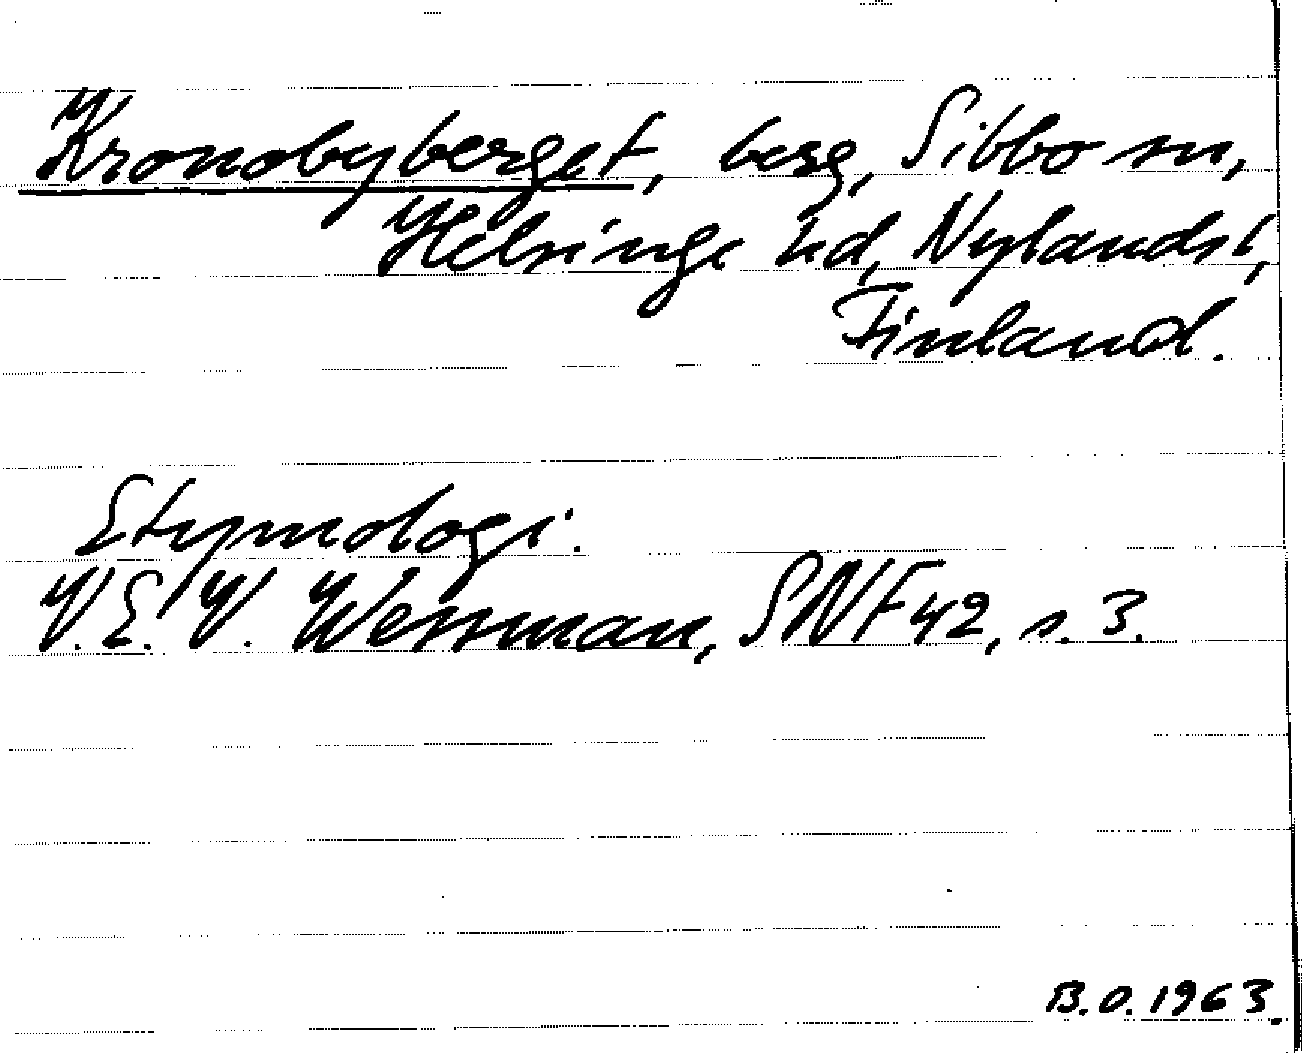 Kronobyberget, berg, Sibbo sn,
Helsinge hd, Nylands l,
Finland.
Etymologi.
V.E.V. Wessman, SNF 42, s. 3.
B.O. 1963.